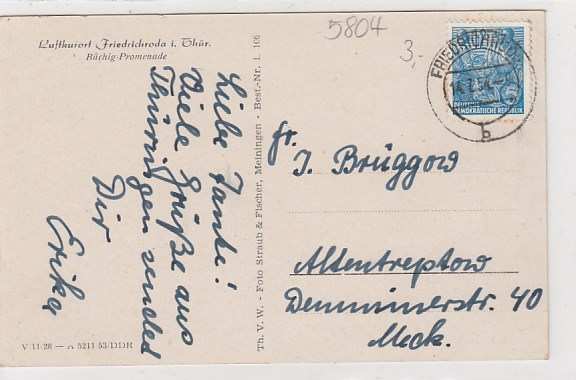 Luftkurort Friedrichroda i. Thür.
Büchig-Promenade
5804
3,-
DEUTSCHE
DEMOKRATISCHE REPUBLIK
b
Liebe Tante!
Viele Grüße aus
Thüringen sendet
Dir
Erika
Th. V. W. - Foto Straub & Fischer, Meiningen - Best.-Nr. L 106
Fr.
J. Brüggow
Altentreptow
Demminerstr. 40
Meck.
V 11/28 — A 5211/53/DDR